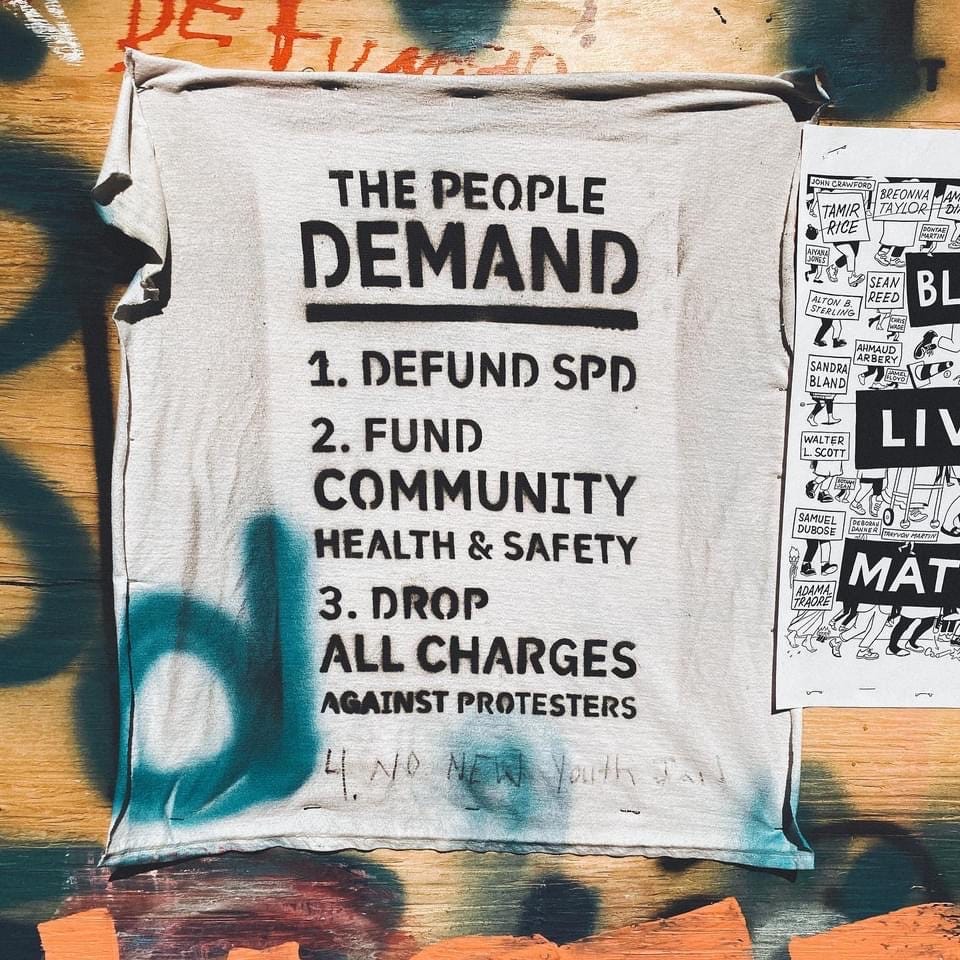 DEFUND
THE PEOPLE
DEMAND
1. DEFUND SPD
2. FUND
COMMUNITY
HEALTH & SAFETY
3. DROP
ALL CHARGES
AGAINST PROTESTERS
4. NO NEW Youth Jail
JOHN CRAWFORD
TAMIR
RICE
BREONNA
TAYLOR
DONTAE
MARTIN
AIYANA
JONES
SEAN
REED
BL
ALTON B.
STERLING
CHRIS
WADE
AHMAUD
ARBERY
SANDRA
BLAND
JAMEL
FLOYD
LIV
WALTER
L. SCOTT
BOTHAM
JEAN
SAMUEL
DUBOSE
DEBORAH
DANNER
TRAYVON MARTIN
MAT
ADAMA
TRAORE